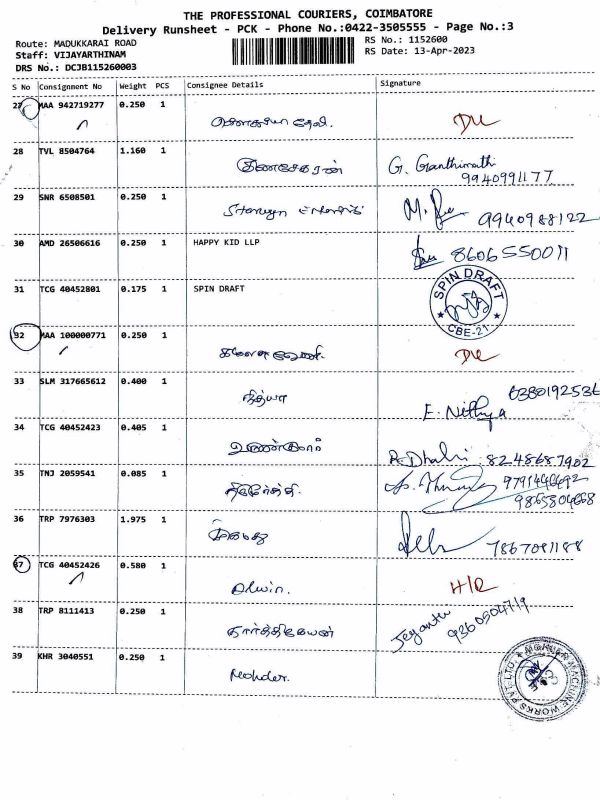 THE PROFESSIONAL COURIERS, COIMBATORE
Delivery Runsheet - PCK - Phone No.:0422-3505555 - Page No.:3
Route: MADUKKARAI ROAD
RS No.: 1152600
Staff: VIJAYARTHINAM
RS Date: 13-Apr-2023
DRS No.: DCJB115260003
S No Consignment No Weight PCS Consignee Details Signature
27 MAA 942719277 0.250 1
தேவி.
28 TVL 8504764 1.160 1
குணசேகரன் G. Ganthimathi
9940991177
29 SNR 6508501 0.250 1
M. 9940988122
30 AMD 26506616 0.250 1 HAPPY KID LLP
8606550011
31 TCG 40452801 0.175 1 SPIN DRAFT
SPIN DRAFT
CBE-21
32 MAA 100000771 0.250 1
33 SLM 317665612 0.400 1
நித்யா 6380192536
F. Nithya
34 TCG 40452423 0.405 1
8248687902
35 TNJ 2059541 0.085 1
9865804668
36 TRP 7976303 1.975 1
7867091188
37 TCG 40452426 0.580 1
Alwin. H/R
38 TRP 8111413 0.250 1
கார்த்திகேயன் Jeyanthi
9360504719
39 KHR 3040551 0.250 1
MACHINE WORKS PVT. LTD.